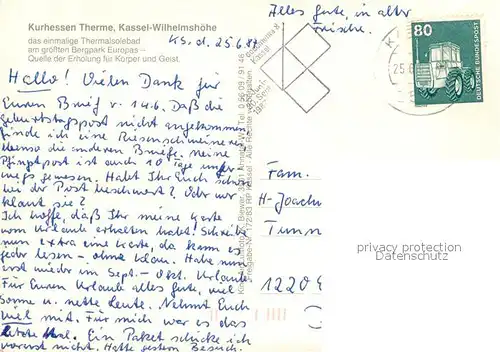 Kurhessen Therme, Kassel-Wilhelmshöhe
das einmalige Thermalsolebad
am größten Bergpark Europas –
Quelle der Erholung für Körper und Geist.
Ks. d. 25.6.87
Alles Gute, in alter
Frische.
80
DEUTSCHE BUNDESPOST
Hallo! Vielen Dank für
Euren Brief v. 14.6. Daß die
Geburtstagspost nicht angekommen
finde ich eine Riesenschweinerei
ebenso die anderen Briefe. Meine
Pfingstpost ist auch 10 Tage unter-
wegs gewesen. Habt Ihr Euch schon
bei der Post beschwert? Oder wer
klaut sie?
Ich hoffe, daß Ihr meine Karte
vom Urlaub erhalten habt. Schreibe
nun extra eine Karte, da kann es
jeder lesen – ohne Klau. Habe nun
erst wieder im Sept.- Okt. Urlaub.
Für Euren Urlaub alles Gute, viel
Sonne u. nette Leute. Nehmt Euch
viel mit. Für mich war es das
letzte Mal. Ein Paket schicke ich
vorerst nicht. Hatte gestern Besuch.
Fam.
H-Joach
Tunn
1220
privacy protection
Datenschutz